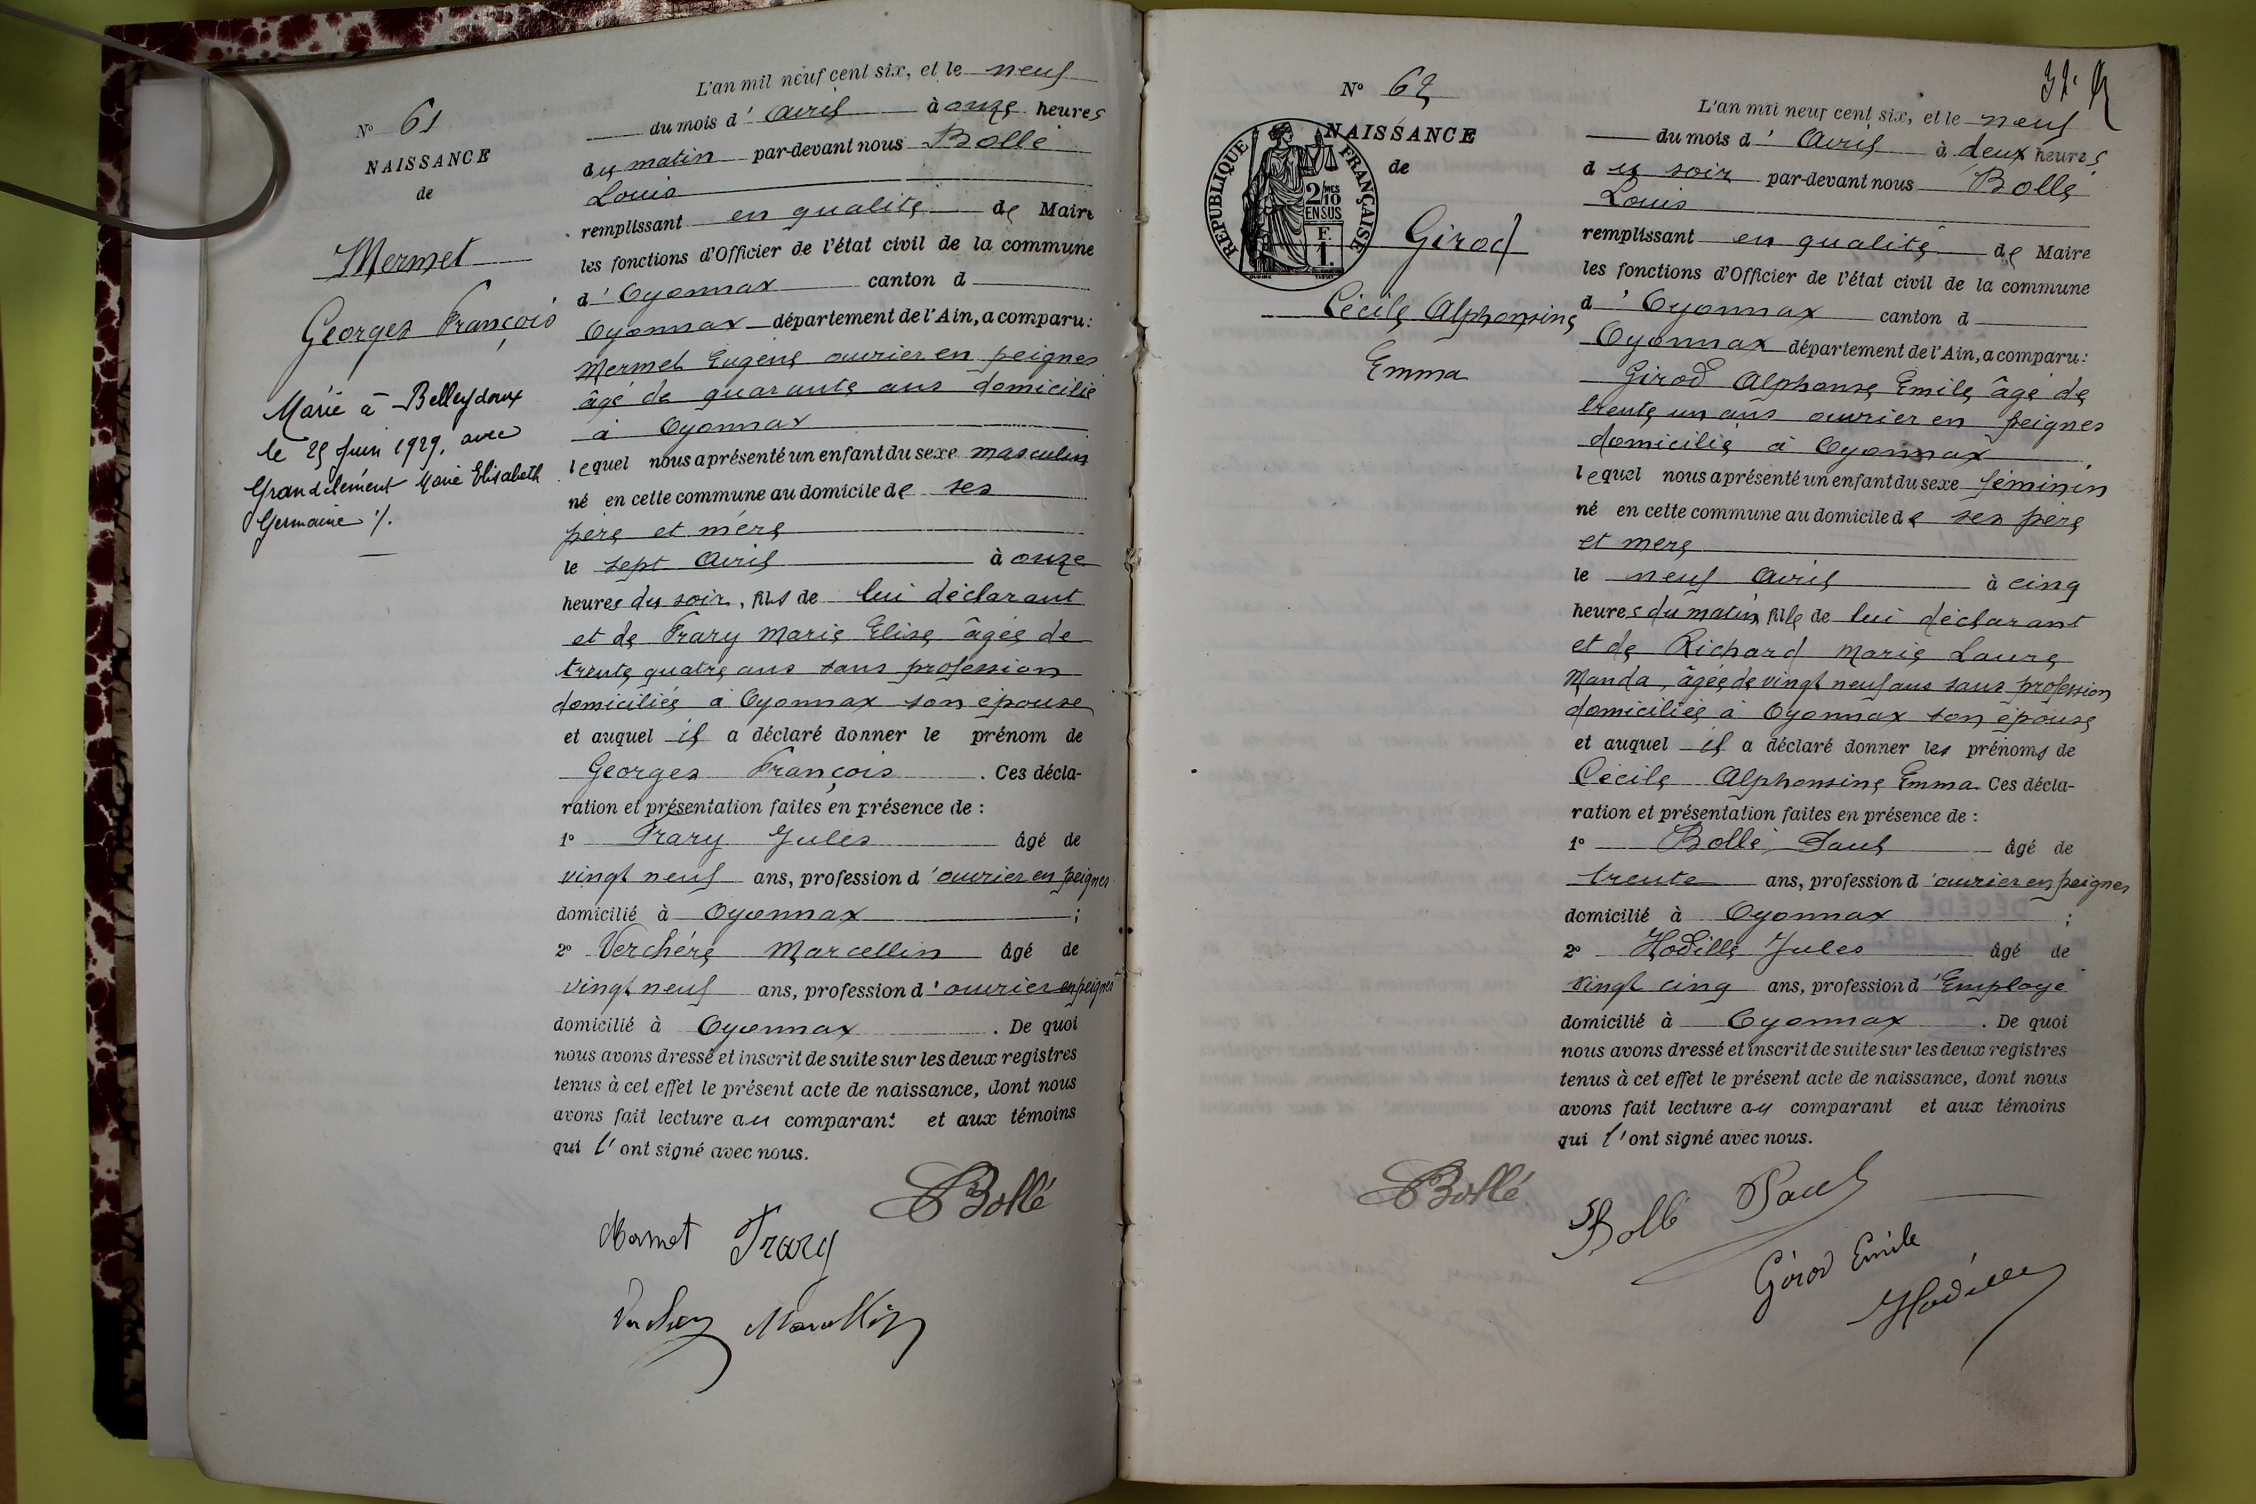 N° 61
NAISSANCE
de
Mermet
Georges François
Marié à Belleydoux
le 25 Juin 1929, avec
Grandclément Marie Elisabeth
Germaine ./.
L'an mil neuf cent six, et le neuf
du mois d' Avril à onze heures
du matin par-devant nous Bollé
Louis
remplissant en qualité de Maire
les fonctions d'Officier de l'état civil de la commune
d' Oyonnax canton d
Oyonnax département de l'Ain, a comparu :
Mermet Eugène ouvrier en peignes
âgé de quarante ans domicilié
à Oyonnax
lequel nous a présenté un enfant du sexe masculin
né en cette commune au domicile de ses
père et mère
le sept Avril à onze
heures du soir, fils de lui déclarant
et de Frary Marie Elise âgée de
trente quatre ans sans profession
domiciliée à Oyonnax son épouse
et auquel il a déclaré donner le prénom de
Georges François . Ces décla-
ration et présentation faites en présence de :
1° Frary Jules âgé de
vingt neuf ans, profession d'ouvrier en peignes
domicilié à Oyonnax ;
2° Verchère Marcellin âgé de
vingt neuf ans, profession d'ouvrier en peignes
domicilié à Oyonnax . De quoi
nous avons dressé et inscrit de suite sur les deux registres
tenus à cet effet le présent acte de naissance, dont nous
avons fait lecture au comparant et aux témoins
qui l'ont signé avec nous.
Bollé
Mermet Frary
Marcellin
32
N° 62
NAISSANCE
de
REPUBLIQUE FRANÇAISE
2/10 EN SUS
F. 1.
Girod
Cécile Alphonsine
Emma
L'an mil neuf cent six, et le neuf
du mois d' Avril à deux heures
du soir par-devant nous Bollé
Louis
remplissant en qualité de Maire
les fonctions d'Officier de l'état civil de la commune
d' Oyonnax canton d
Oyonnax département de l'Ain, a comparu :
Girod Alphonse Emile âgé de
trente un ans ouvrier en peignes
domicilié à Oyonnax
lequel nous a présenté un enfant du sexe féminin
né en cette commune au domicile de ses père
et mère
le neuf Avril à cinq
heures du matin fille de lui déclarant
et de Richard Marie Laure
Manda, âgée de vingt neuf ans sans profession
domiciliée à Oyonnax son épouse
et auquel il a déclaré donner les prénoms de
Cécile Alphonsine Emma. Ces décla-
ration et présentation faites en présence de :
1° Bollé Paul âgé de
trente ans, profession d'ouvrier en peignes
domicilié à Oyonnax ;
2° Hodille Jules âgé de
vingt cinq ans, profession d'Employé
domicilié à Oyonnax . De quoi
nous avons dressé et inscrit de suite sur les deux registres
tenus à cet effet le présent acte de naissance, dont nous
avons fait lecture au comparant et aux témoins
qui l'ont signé avec nous.
Bollé
Bollé Paul
Girod Emile
Hodille